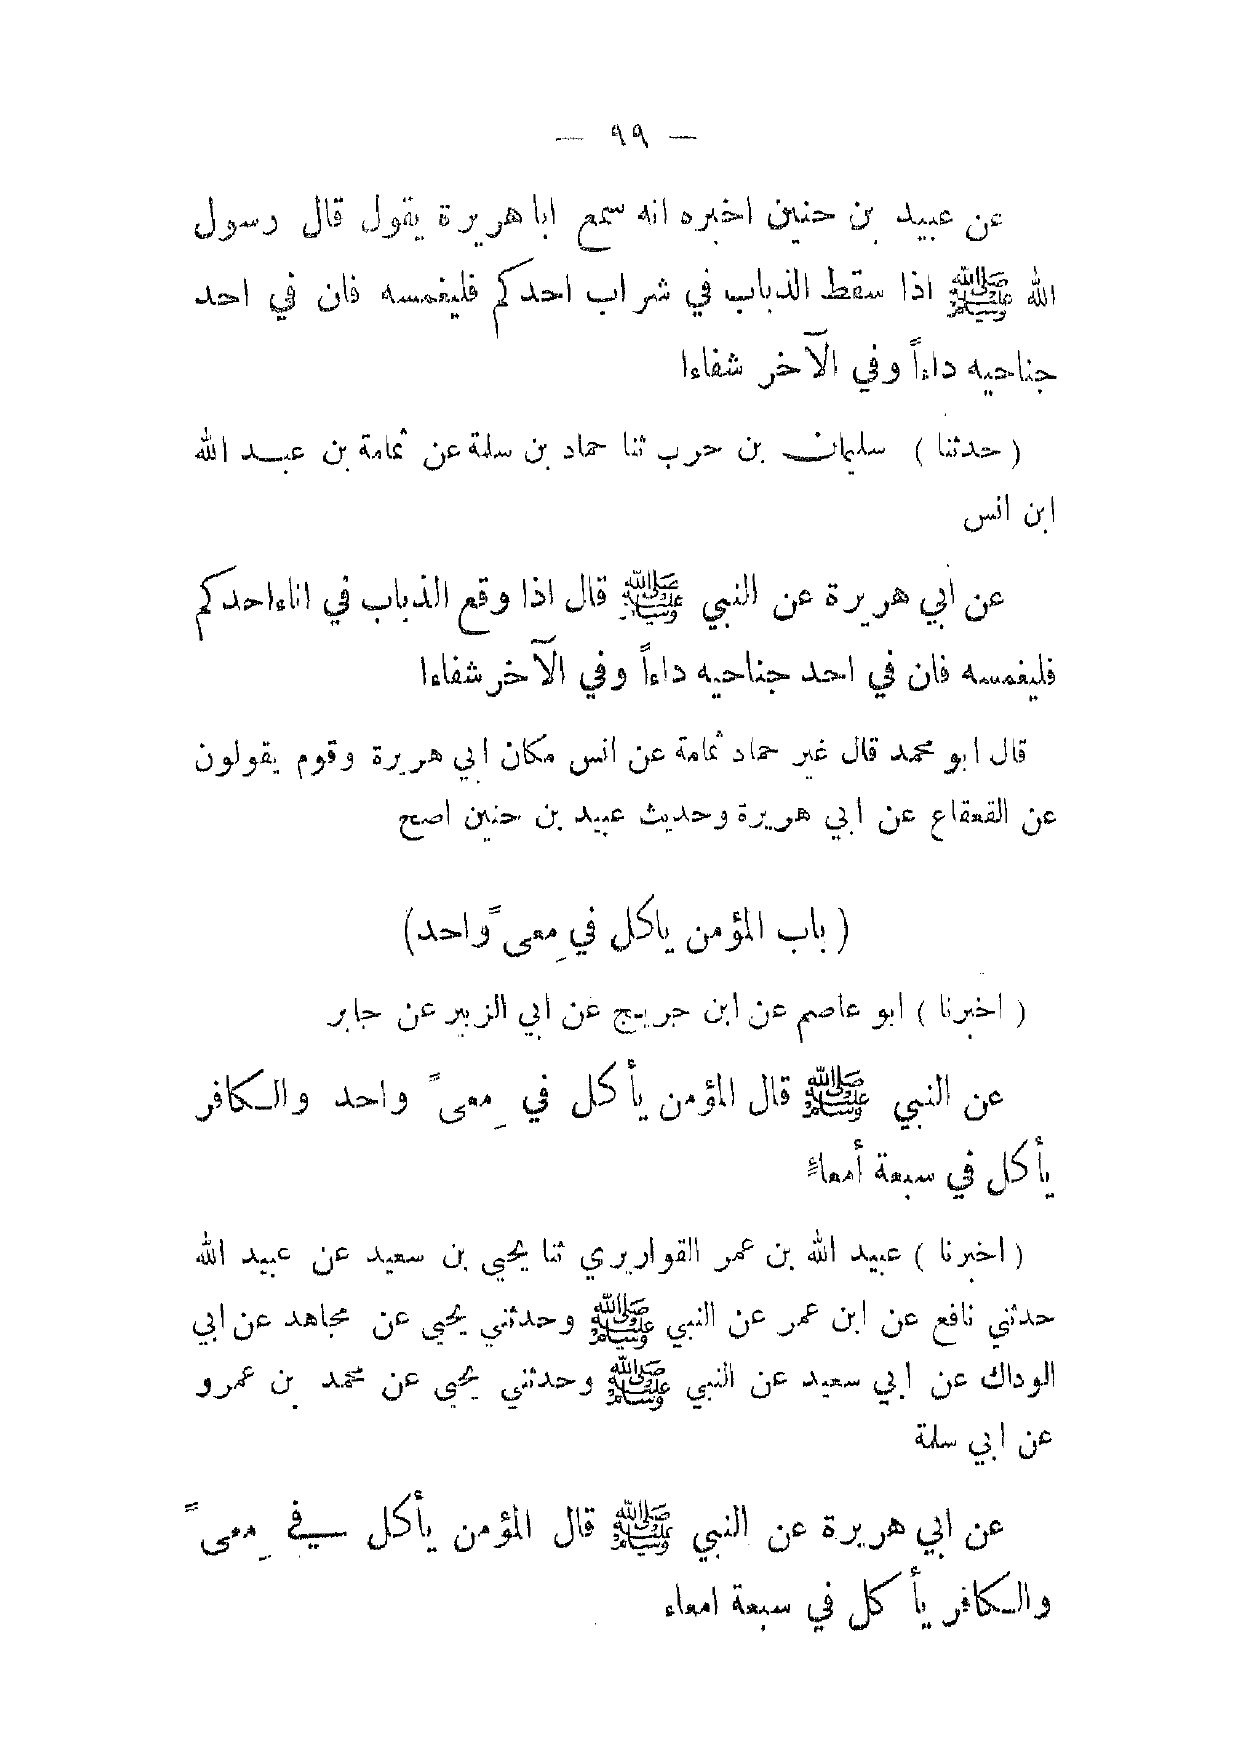 — ٩٩ —
عن عبيد بن حنين اخبره انه سمع ابا هريرة يقول قال رسول
الله ﷺ اذا سقط الذباب في شراب احدكم فليغمسه فان في احد
جناحيه داءاً وفي الآخر شفاءا
( حدثنا ) سليمان بن حرب ثنا حماد بن سلمة عن ثمامة بن عبد الله
ابن انس
عن ابي هريرة عن النبي ﷺ قال اذا وقع الذباب في اناء احدكم
فليغمسه فان في احد جناحيه داءاً وفي الآخر شفاءا
قال ابو محمد قال غير حماد ثمامة عن انس مكان ابي هريرة وقوم يقولون
عن القعقاع عن ابي هريرة وحديث عبيد بن حنين اصح
( باب المؤمن ياكل في مِعىً واحد)
( اخبرنا ) ابو عاصم عن ابن جريج عن ابي الزبير عن جابر
عن النبي ﷺ قال المؤمن يأكل في مِعىً واحد والكافر
يأكل في سبعة أمعاءً
( اخبرنا ) عبيد الله بن عمر القواريري ثنا يحيى بن سعيد عن عبيد الله
حدثني نافع عن ابن عمر عن النبي ﷺ وحدثني يحيى عن مجاهد عن ابي
الوداك عن ابي سعيد عن النبي ﷺ وحدثني يحيى عن محمد بن عمرو
عن ابي سلمة
عن ابي هريرة عن النبي ﷺ قال المؤمن يأكل في مِعىً
والكافر يأكل في سبعة امعاء